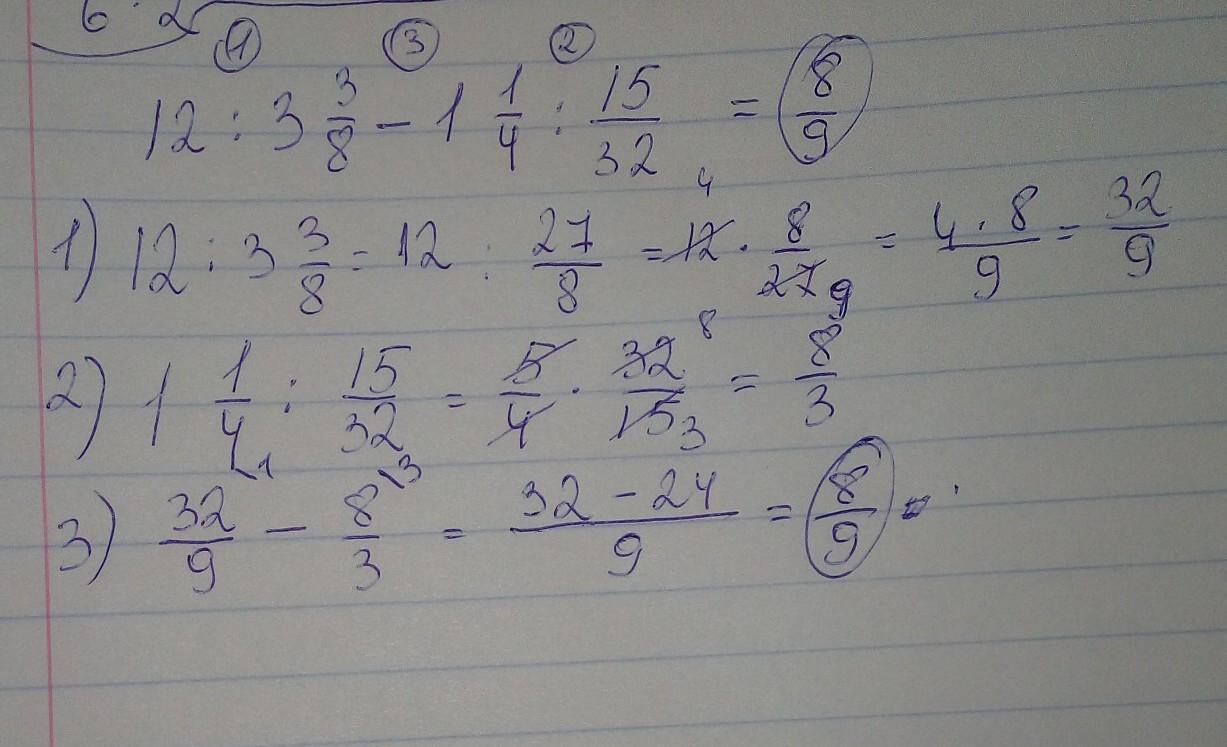 6 · 2
① ③ ②
12 : 3 3/8 − 1 1/4 : 15/32 = 8/9
1) 12 : 3 3/8 = 12 : 27/8 = 12 4 · 8/27 9 = 4 · 8/9 = 32/9
2) 1 1/4 : 15/32 = 5/4 · 32 8/15 3 = 8/3
3) 32/9 \1 − 8/3 \3 = 32 − 24/9 = 8/9 .